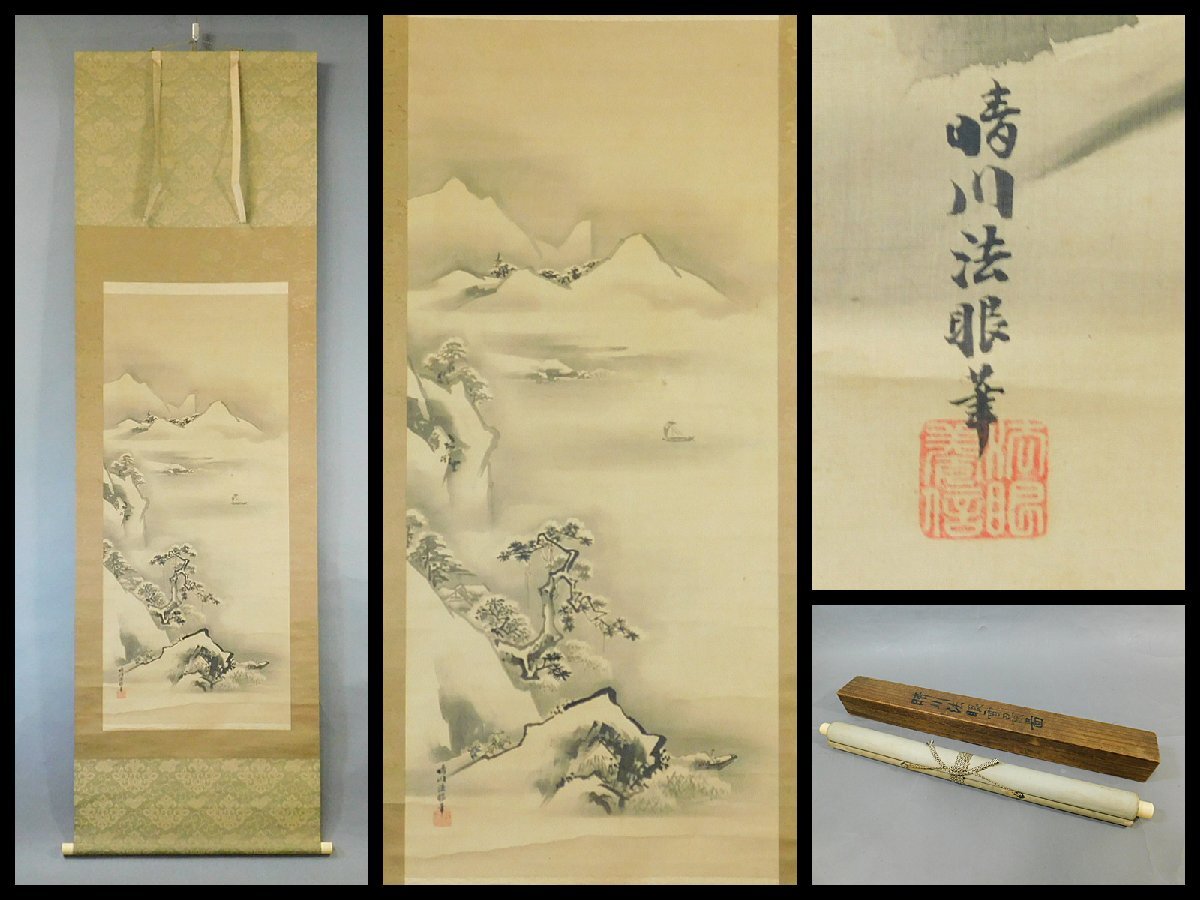 晴川法眼筆
法眼
養信
晴川法眼筆